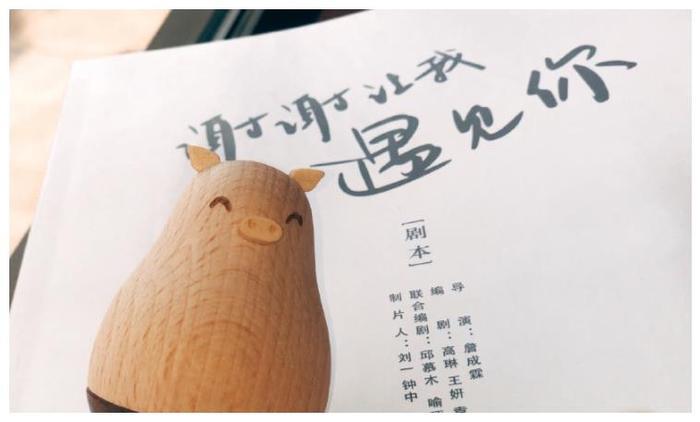 谢谢让我
遇见你
[剧本]
导 演:詹成霖
编 剧:高琳 王妍
联合编剧:邱慕木 喻
制片人:刘一钟中